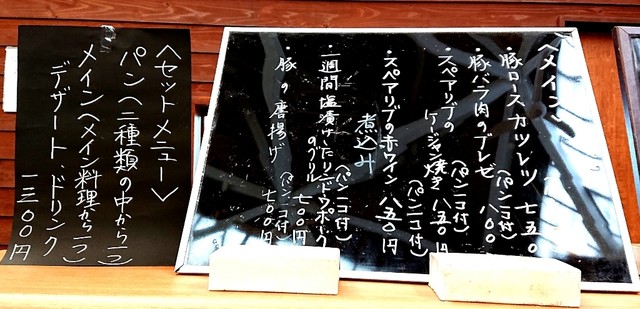 〈メイン〉
・豚ロースカツレツ 七五〇
(パン二コ付)
・豚バラ肉のブレゼ 八〇〇
(パン二コ付)
・スペアリブの
ケージャン焼き 八五〇円
(パン二コ付)
・スペアリブの赤ワイン 八五〇円
煮込み
(パン二コ付)
・一週間塩漬けしたリンドウポーク
のグリル 七〇〇円
(パン二コ付)
・豚の唐揚げ 七〇〇円
〈セットメニュー〉
パン(三種類の中から一つ)
メイン(メイン料理から一つ)
デザート、ドリンク
一三〇〇円